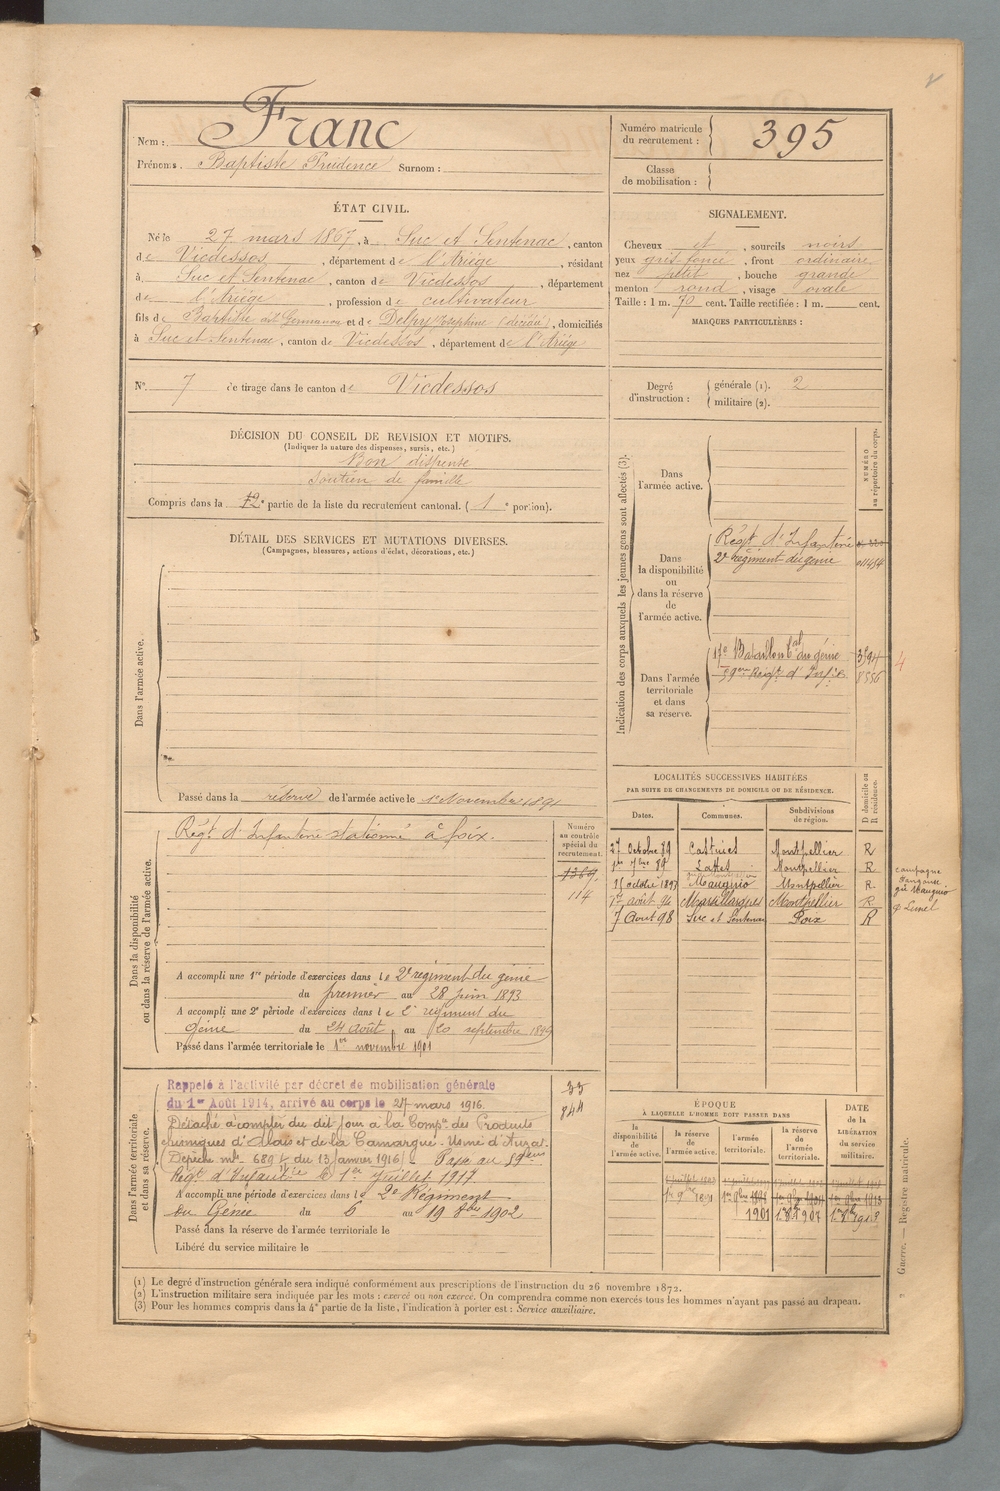 Nom : Franc
Prénoms : Baptiste Prudence Surnom :
Numéro matricule du recrutement : 395
Classe de mobilisation :
ÉTAT CIVIL.
Né le 27 mars 1867, à Suc et Sentenac, canton
de Vicdessos, département de l'Ariège, résidant
à Suc et Sentenac, canton de Vicdessos, département
de l'Ariège, profession de cultivateur
fils de Baptiste dit Germanou et de Delpy Josephine (décédé), domiciliés
à Suc et Sentenac, canton de Vicdessos, département de l'Ariège
SIGNALEMENT.
Cheveux et, sourcils noirs
yeux gris foncé, front ordinaire
nez petit, bouche grande
menton rond, visage ovale
Taille : 1 m. 70 cent. Taille rectifiée : 1 m. cent.
MARQUES PARTICULIÈRES :
N° 7 de tirage dans le canton de Vicdessos
Degré d'instruction : générale (1). 2
militaire (2).
DÉCISION DU CONSEIL DE REVISION ET MOTIFS.
(Indiquer la nature des dispenses, sursis, etc.)
Bon dispense
soutien de famille
Compris dans la 2e partie de la liste du recrutement cantonal. (1e portion).
DÉTAIL DES SERVICES ET MUTATIONS DIVERSES.
(Campagnes, blessures, actions d'éclat, décorations, etc.)
Dans l'armée active.
Passé dans la réserve de l'armée active le 1er Novembre 1891
Indication des corps auxquels les jeunes gens sont affectés (3).
NUMÉRO au répertoire du corps.
Dans l'armée active.
Dans la disponibilité ou dans la réserve de l'armée active.
Régt d'Infanterie
2e régiment du génie
Dans l'armée territoriale et dans sa réserve.
17e Bataillon tal du génie
59eme Régt d'Inf
4
LOCALITÉS SUCCESSIVES HABITÉES
PAR SUITE DE CHANGEMENTS DE DOMICILE OU DE RÉSIDENCE.
D domicile ou R résidence.
Dates. Communes. Subdivisions de région.
27 Octobre 89 Castries Montpellier R
1er 7bre 89 Lattes Montpellier R
15 octobre 1893 Mauguio Montpellier R
1er août 94 Marsillargues Montpellier R
7 Août 98 Suc et Sentenac Foix R
Dans la disponibilité ou dans la réserve de l'armée active.
Régt d'Infanterie stationné à foix.
Numéro au contrôle spécial du recrutement.
1369
114
A accompli une 1re période d'exercices dans le 2e régiment du génie
du premier au 28 juin 1893
A accompli une 2e période d'exercices dans le 2e régiment du
génie du 24 août au 20 septembre
Passé dans l'armée territoriale le 1er novembre 1901
Dans l'armée territoriale et dans sa réserve.
Rappelé à l'activité par décret de mobilisation générale
du 1er Août 1914, arrivé au corps le 27 mars 1916.
Détaché à compter du dit jour à la Compie des Produits
chimiques d'Alais et de la Camargue. Usine d'Auzat.
(Dépêche mlle 689 du 13 janvier 1916). Passé au 59eme
Régt d'Infanterie le 1er juillet 1917
A accompli une période d'exercices dans le 2e Régiment
du Génie du 6 au 19 8bre 1902
Passé dans la réserve de l'armée territoriale le
Libéré du service militaire le
35
844
ÉPOQUE
À LAQUELLE L'HOMME DOIT PASSER DANS
la disponibilité de l'armée active.
la réserve de l'armée active.
l'armée territoriale.
la réserve de l'armée territoriale.
DATE de la LIBÉRATION du service militaire.
(1) Le degré d'instruction générale sera indiqué conformément aux prescriptions de l'instruction du 26 novembre 1872.
(2) L'instruction militaire sera indiquée par les mots : exercé ou non exercé. On comprendra comme non exercés tous les hommes n'ayant pas passé au drapeau.
(3) Pour les hommes compris dans la 4e partie de la liste, l'indication à porter est : Service auxiliaire.
Guerre. — Registre matricule.